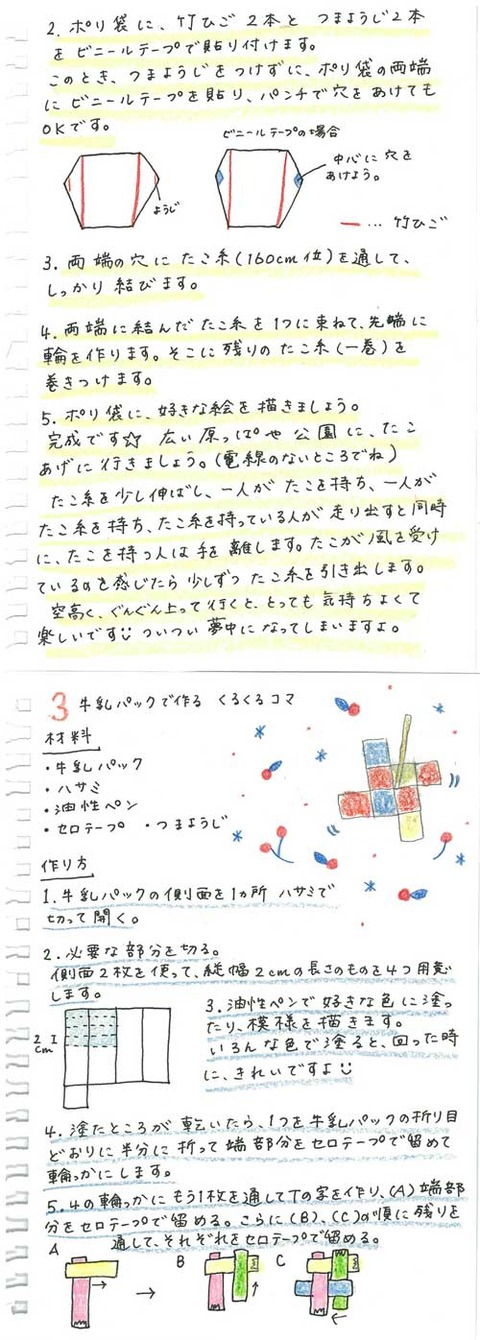 2. ポリ袋に、竹ひご2本とつまようじ2本
をビニールテープで貼り付けます。
このとき、つまようじをつけずに、ポリ袋の両端
にビニールテープを貼り、パンチで穴をあけても
OKです。
ビニールテープの場合
中心に穴を
あけよう。
ようじ
… 竹ひご
3. 両端の穴にたこ糸(160cm位)を通して、
しっかり結びます。
4. 両端に結んだたこ糸を1つに束ねて、先端に
輪を作ります。そこに残りのたこ糸(一巻)を
巻きつけます。
5. ポリ袋に、好きな絵を描きましょう。
完成です☆ 広い原っぱや公園に、たこ
あげに行きましょう。(電線のないところでね)
たこ糸を少し伸ばし、一人がたこを持ち、一人が
たこ糸を持ち、たこ糸を持っている人が走り出すと同時
に、たこを持つ人は手を離します。たこが風を受け
ているのを感じたら少しずつたこ糸を引き出します。
空高く、ぐんぐん上って行くと、とっても気持ちよくて
楽しいです ついつい夢中になってしまいますよ。
3 牛乳パックで作る くるくるコマ
材料
・牛乳パック
・ハサミ
・油性ペン
・セロテープ ・つまようじ
作り方
1. 牛乳パックの側面を1ヵ所ハサミで
切って開く。
2. 必要な部分を切る。
側面2枚を使って、縦幅2cmの長さのものを4つ用意
します。
2
cm
3. 油性ペンで好きな色に塗っ
たり、模様を描きます。
いろんな色で塗ると、回った時
に、きれいですよ
4. 塗たところが乾いたら、1つを牛乳パックの折り目
どおりに半分に折って端部分をセロテープで留めて
輪っかにします。
5. 4の輪っかにもう1枚を通してTの字を作り、(A)端部
分をセロテープで留める。さらに(B)、(C)の順に残りを
通して、それぞれをセロテープで留める。
A → B C